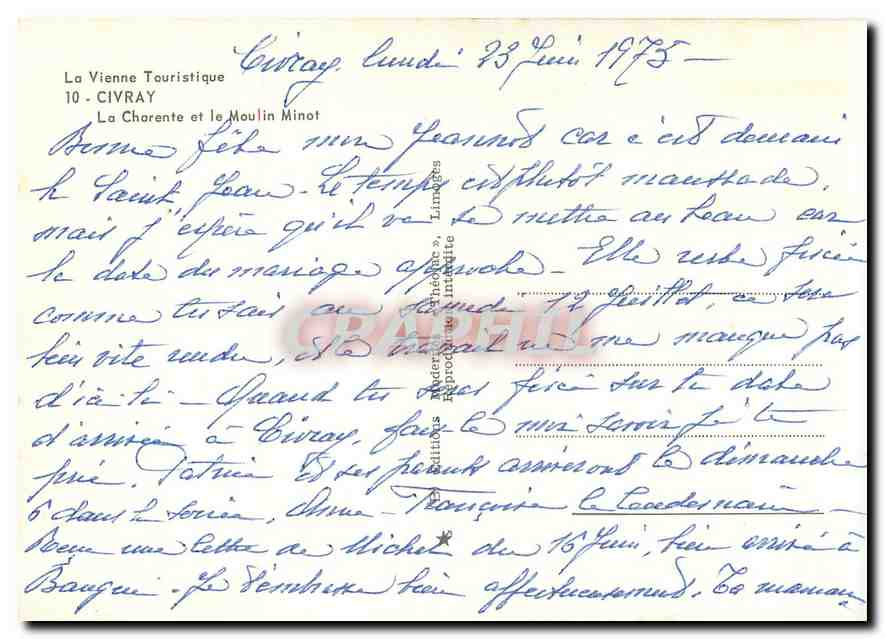 Civray, lundi 23 Juin 1975 -
La Vienne Touristique
10 - CIVRAY
La Charente et le Moulin Minot
Bonne fête mon Jeannot car c'est demain
la Saint Jean - Le temps est plutôt maussade,
mais j'espère qu'il va se mettre au beau car
la date du mariage approche - Elle reste fixée
comme tu sais au samedi 12 Juillet, ce sera
bien vite rendu, et le travail ne me manque pas
d'ici là - Quand tu seras fixé sur ta date
d'arrivée à Civray, fais le moi savoir je te
prie. Patricia et ses parents arriveront le dimanche
6 dans la soirée, Anne-Françoise le lendemain -
Reçu une lettre de Michel du 16 Juin, bien arrivé à
Bangui - Je t'embrasse bien affectueusement. Ta maman
Editions Modernes « Théojac », Limoges
Reproduction interdite
CPAPHIL